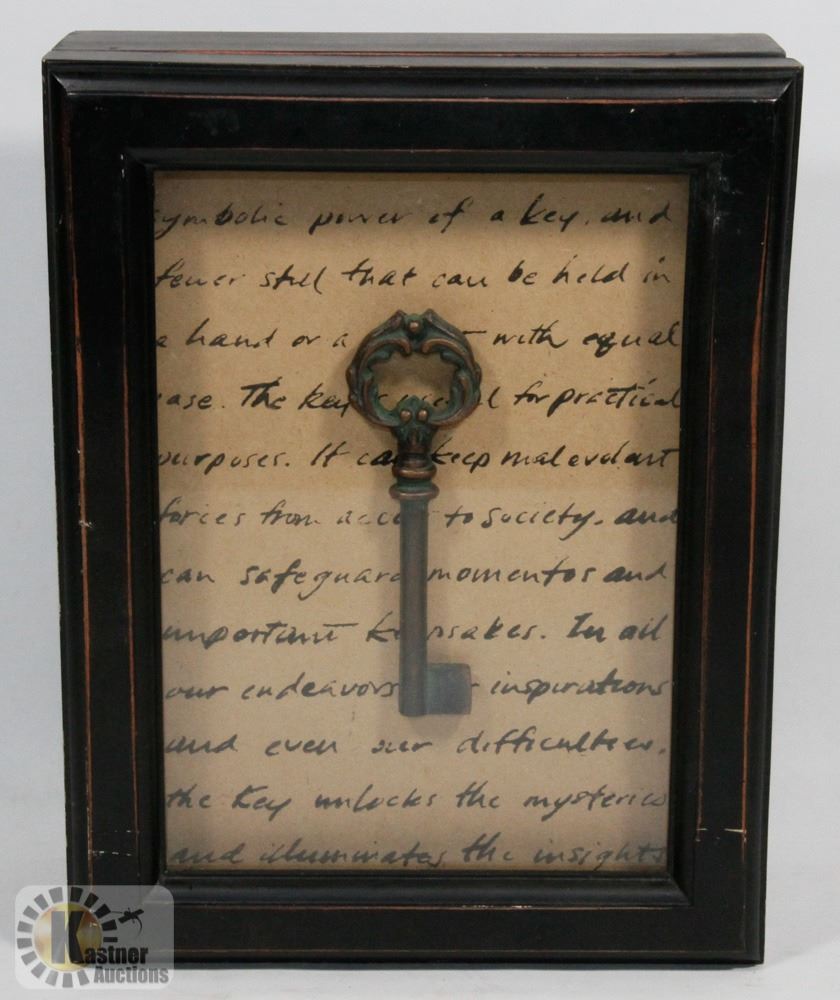 symbolic power of a key, and
fewer still that can be held in
a hand or a with equal
ease. The key for practical
purposes. It can keep malevolant
forces from to society, and
can safeguard momentos and
important keepsakes. In all
our endeavors inspirations
and even our difficulties,
the key unlocks the mysteries
and illuminates the insights
Kastner
Auctions